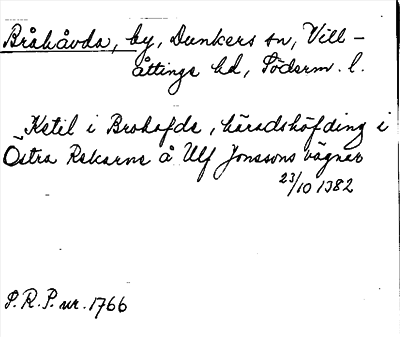 Bråhåvda, by, Dunkers sn, Vill-
åttinge hd, Söderm. l.
Ketil i Brohofde, häradshöfding i
Östra Rekarne å Ulf Jonssons vägnar
23/10 1382
P.R.P. nr. 1766